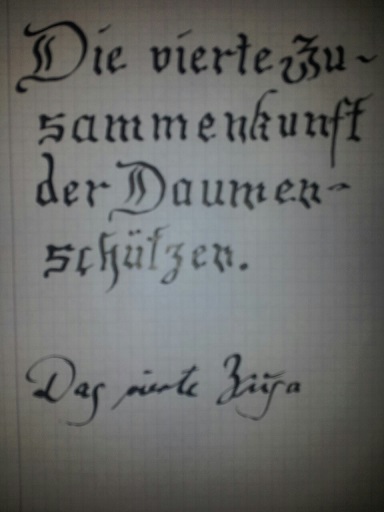 Die vierte Zu-
sammenkunft
der Daumen-
schützen.
Das vierte